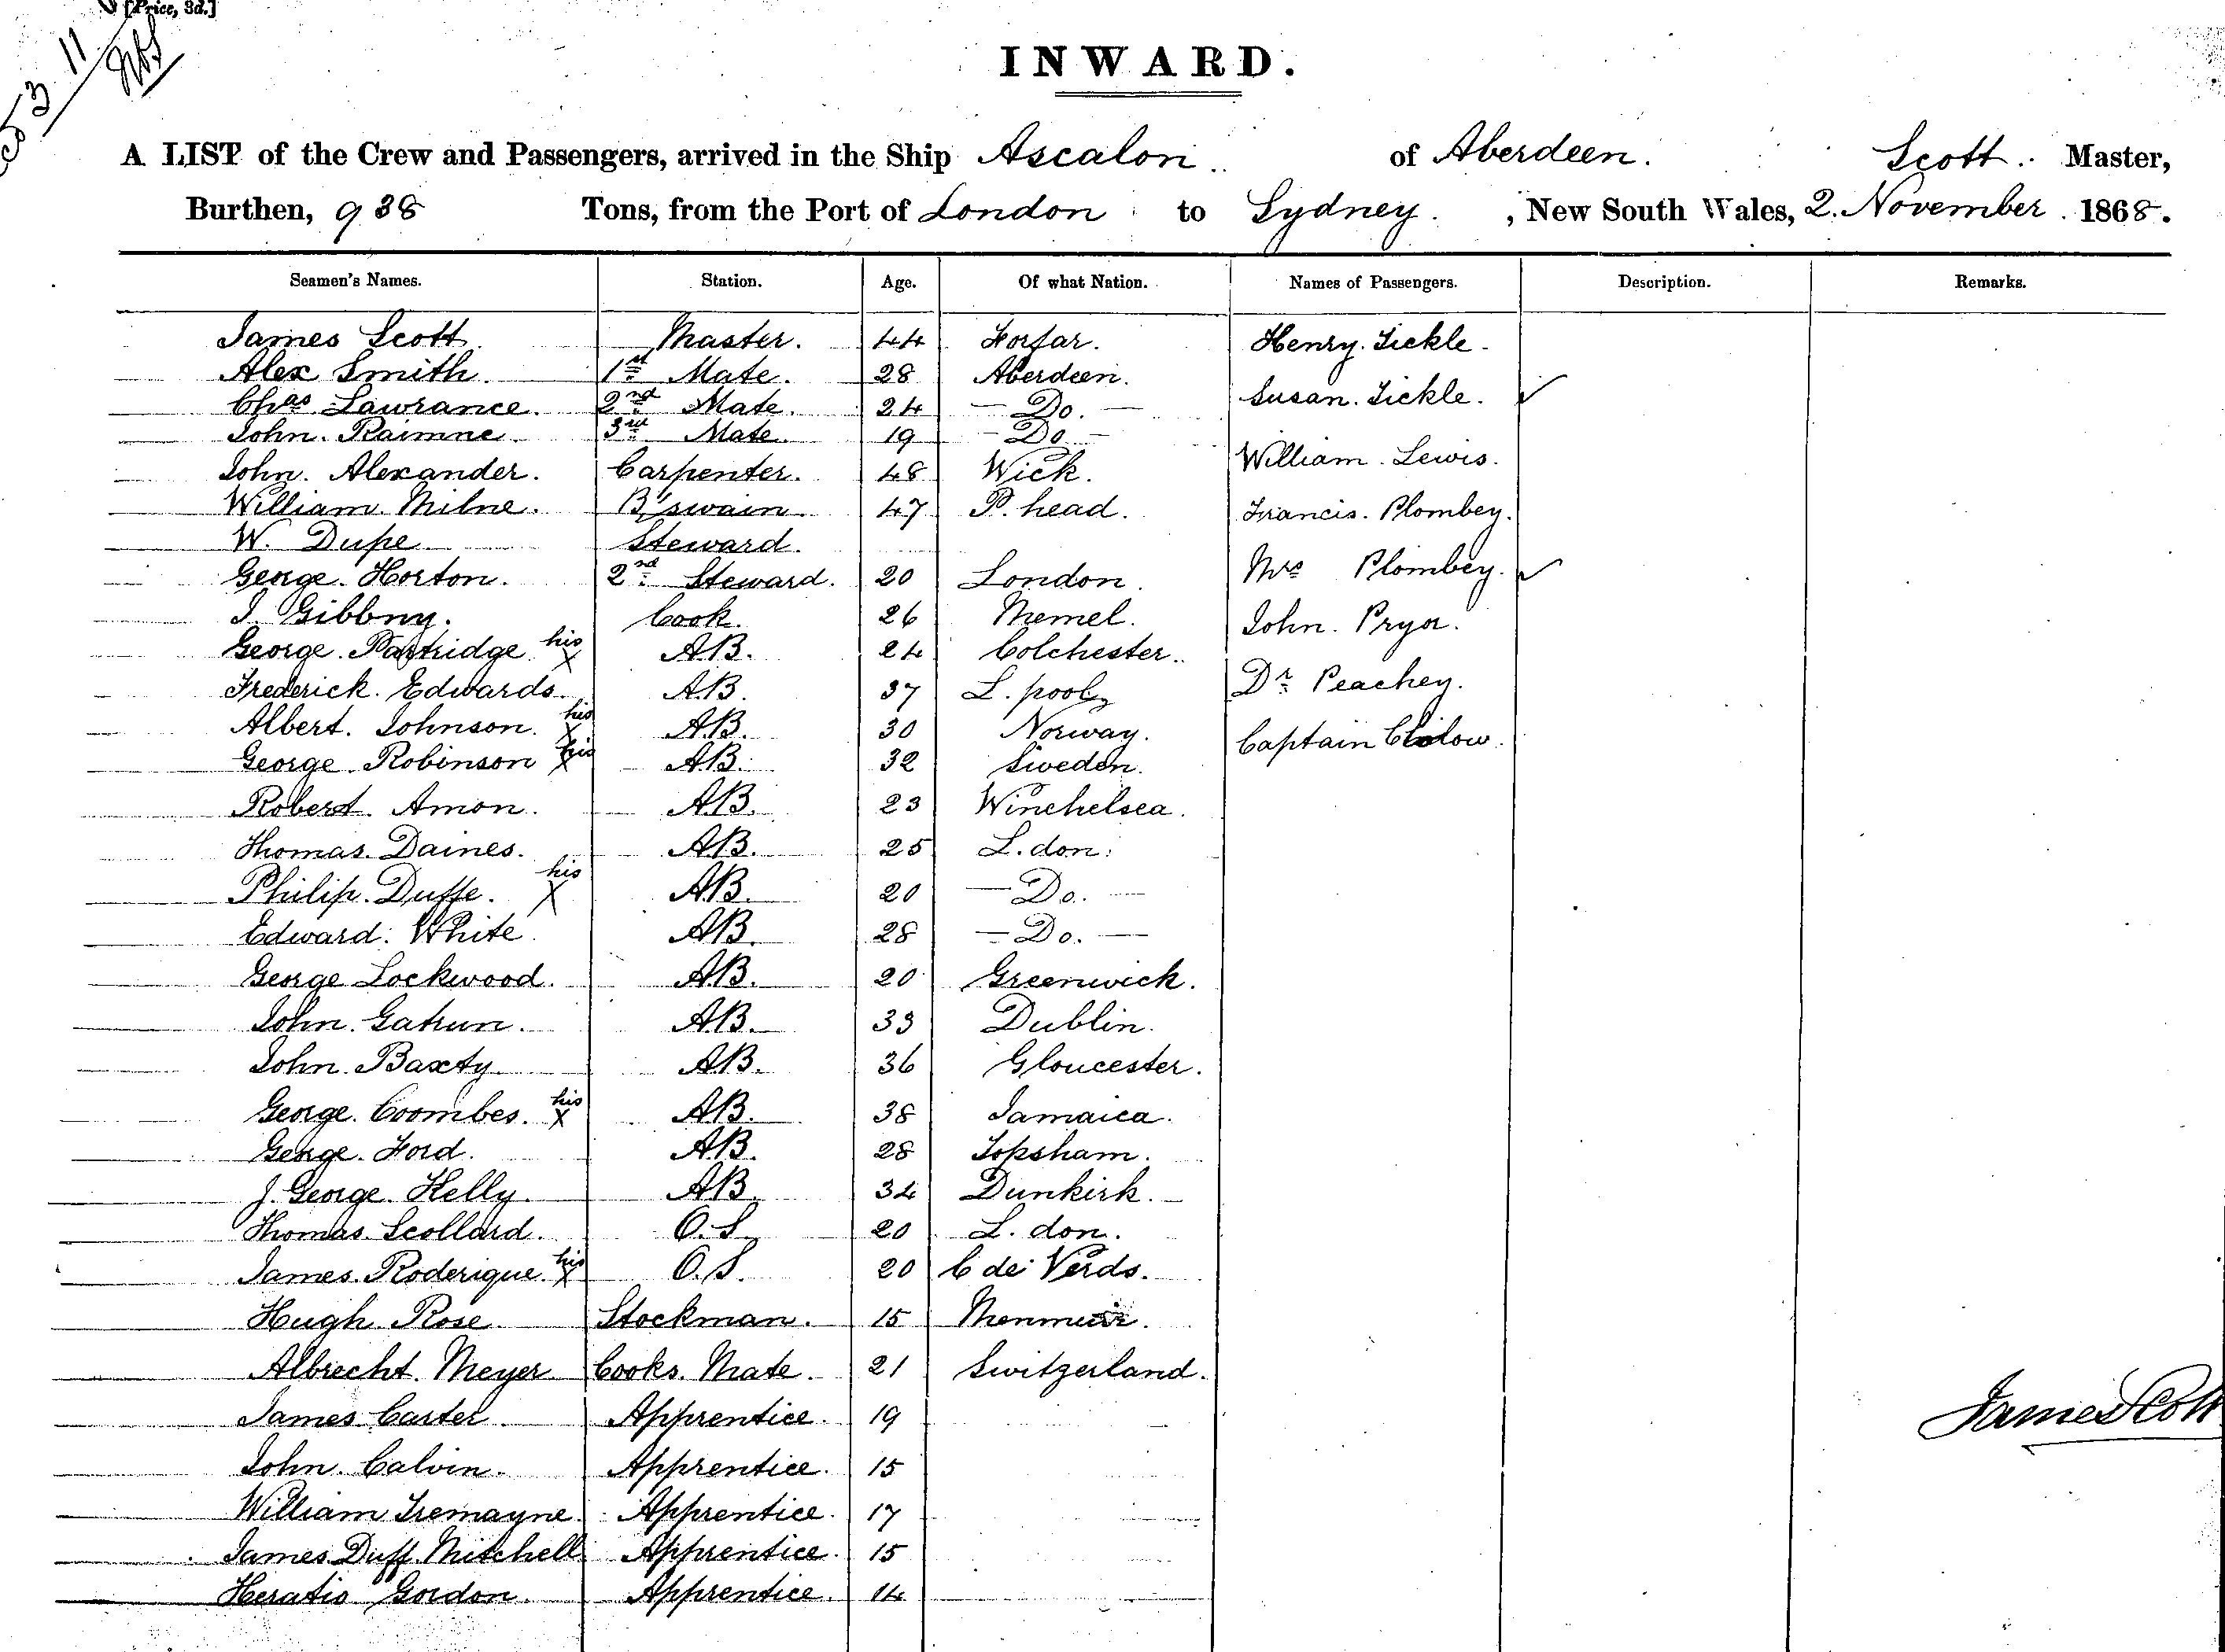 [Price, 3d.]
INWARD.
A LIST of the Crew and Passengers, arrived in the Ship Ascalon of Aberdeen. Scott. Master,
Burthen, 938 Tons, from the Port of London to Sydney. , New South Wales, 2. November. 1868.
Seamen's Names. Station. Age. Of what Nation. Names of Passengers. Description. Remarks.
James Scott. Master. 44 Forfar. Henry. Tickle.
Alex Smith. 1st Mate. 28 Aberdeen.
Susan. Tickle. ✓
Chas Lawrance. 2nd Mate. 24 — Do. —
John. Raimne 3rd Mate. 19 — Do —
William. Lewis.
John. Alexander. Carpenter. 48 Wick.
William. Milne. B'swain. 47 P. head. Francis. Plombey.
W. Dupe Steward.
Mrs Plombey. ✓
George. Horton. 2nd Steward. 20 London.
J. Gibbny. Cook. 26 Memel. John. Pryor.
George. Partridge his X A.B. 24 Colchester.
Frederick. Edwards. A.B. 37 L. pool Dr Peachey.
Albert. Johnson. his X A.B. 30 Norway.
Captain
George. Robinson his X A.B. 32 Sweden.
Robert. Amon. A.B. 23 Winchelsea.
Thomas. Daines. A.B. 25 L. don.
Philip. Duffe. his X A.B. 20 — Do. —
Edward. White. A.B. 28 — Do. —
George Lockwood. A.B. 20 Greenwick.
John. Gatrun. A.B. 33 Dublin.
John. Baxty A.B. 36 Gloucester.
George. Coombes. his X A.B. 38 Jamaica.
George. Ford. A.B. 28 Topsham.
J. George. Helly. A.B. 34 Dunkirk.
Thomas. Scollard. O.S. 20 L. don.
James. Roderique. his X O.S. 20 C de Verds.
Hugh. Rose. Stockman. 15 Menmuir.
Albrecht. Meyer Cooks. Mate. 21 Switzerland.
James. Carter. Apprentice. 19
James Scott
John. Calvin. Apprentice. 15
William Tremayne. Apprentice. 17
James. Duff. Mitchell Apprentice. 15
Heratio Gordon. Apprentice. 14